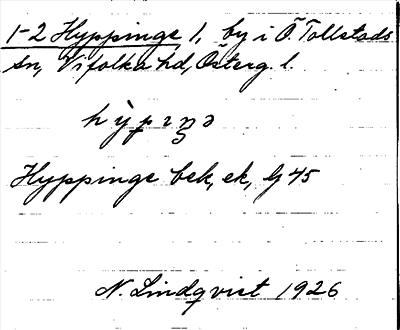 1-2 Hyppinge 1, by i Ö. Tollstads
sn, Vifolka hd, Österg. l.
Hyppinge bek, ek, Gj 45
N. Lindqvist 1926